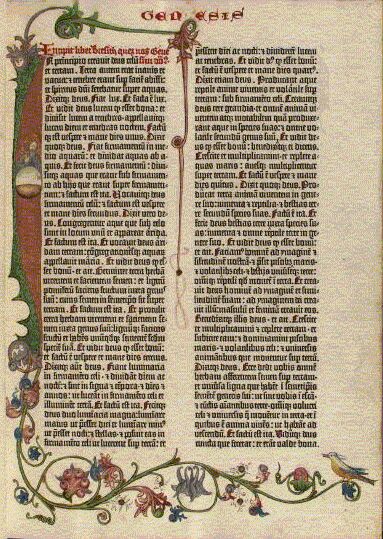 GENESIS
Incipit liber Bresith quez nos Gene
In principio creauit deus celū sim dicim9
et terram. Terra autem erat inanis et
vacua: et tenebre erant sup facie abissi:
et spiritus dñi ferebatur super aquas.
Dixitq; deus. Fiat lux. Et facta ē lux.
Et vidit deus lucem q esset bona: et
diuisit lucem a tenebris · appellauitq;
lucem diem et tenebras noctem. Factuq;
est vespere et mane dies unus. Dixit
quoq; deus. Fiat firmamentū in me-
dio aquarū: et diuidat aquas ab a-
quis. Et fecit deus firmamentū: diui-
sitq; aquas que erant sub firmamen-
to ab hijs que erant super firmamen-
tum: et factum est ita. Vocauitq; deus
firmamentū celū: et factum est vespere
et mane dies secundus. Dixit vero de-
us. Congregentur aque que sub celo
sunt in locum unū et appareat arida.
Et factum est ita. Et vocauit deus ari-
dam terram: cōgregacionesq; aquarū
appellauit maria. Et vidit deus q es-
set bonū · et ait. Germinet terra herbā
virentem et facientem semen: et lignū
pomiferū faciens fructum iuxta genus
suū: cuius semen in semetipso sit super
terram. Et factum est ita. Et protulit
terra herbam virentem et facientem se-
men iuxta genus suū: lignūq; faciens
fructū et habēs unūqdq; sementē scdm
speciē suā. Et vidit deus q esset bonū:
et factū est vespere et mane dies tercius.
Dixitq; aūt deus. Fiant luminaria
in firmamēto celi · et diuidāt diem ac
noctē: et sint in signa et tēpora · et dies et
annos: ut luceāt in firmamēto celi et
illuminēt terrā. Et factū est ita. Fecitq;
deus duo luminaria magna: lumiare
maius ut pesset diei et lumiare min9
ut pesset nocti: et stellas · et posuit eas in
firmamēto celi ut lucerent sup terrā: et
pessent diei ac nocti: et diuiderēt lucem
ac tenebras. Et vidit de9 q esset bonū:
et factū ē vespere et mane dies quart9.
Dixit etiam deus. Producant aque
reptile anime viuentis et volatile sup
terram: sub firmamēto celi. Creauitq;
deus cete grandia · et omnē animā vi-
uentem atq; motabilem quā produxe-
rant aque in species suas: et omne vo-
latile secundū genus suū. Et vidit de-
us q esset bonū: benedixitq; eis dicens.
Crescite et multiplicamini · et replete a-
quas maris: auesq; multiplicentur
super terram. Et factū ē vespere et mane
dies quintus. Dixit quoq; deus. Pro-
ducat terra animā viuentem in gene-
re suo: iumenta et reptilia · et bestias ter-
re secundū species suas. Factū ē ita. Et
fecit deus bestias terre iuxta species su-
as: iumenta et omne reptile terre in ge-
nere suo. Et vidit deus q esset bonū:
et ait. Faciam9 hominē ad ymaginē et
similitudinē nostrā · et psit piscib; maris ·
et volatilib; celi · et bestijs uniuseq; terre:
omīq; reptili qd mouet ī terra. Et crea-
uit deus hominē ad ymaginē et simi-
litudinē suam: ad ymaginem dei crea-
uit illū: masculū et feminā creauit eos.
Benedixitq; illis deus · et ait. Crescite
et multiplicamini et replete terram · et
subicite eam: et dominamini piscibus
maris · et volatilibus celi: et uniuersis
animātibus que mouentur sup terrā.
Dixitq; deus. Ecce dedi vobis omnē
herbam afferentem semen sup terram ·
et uniūsa ligna que habēt ī semetipsis
semētē generis sui: ut sint vobis ī escā ·
et cūctis aīantibus terre · omīq; volucri
celi et uniuersis q mouētur in terra · et ī
quibus ē anima viuēs: ut habeāt ad
vescendū. Et factū est ita. Viditq; deus
cuncta que fecerat: et erāt valde bona.